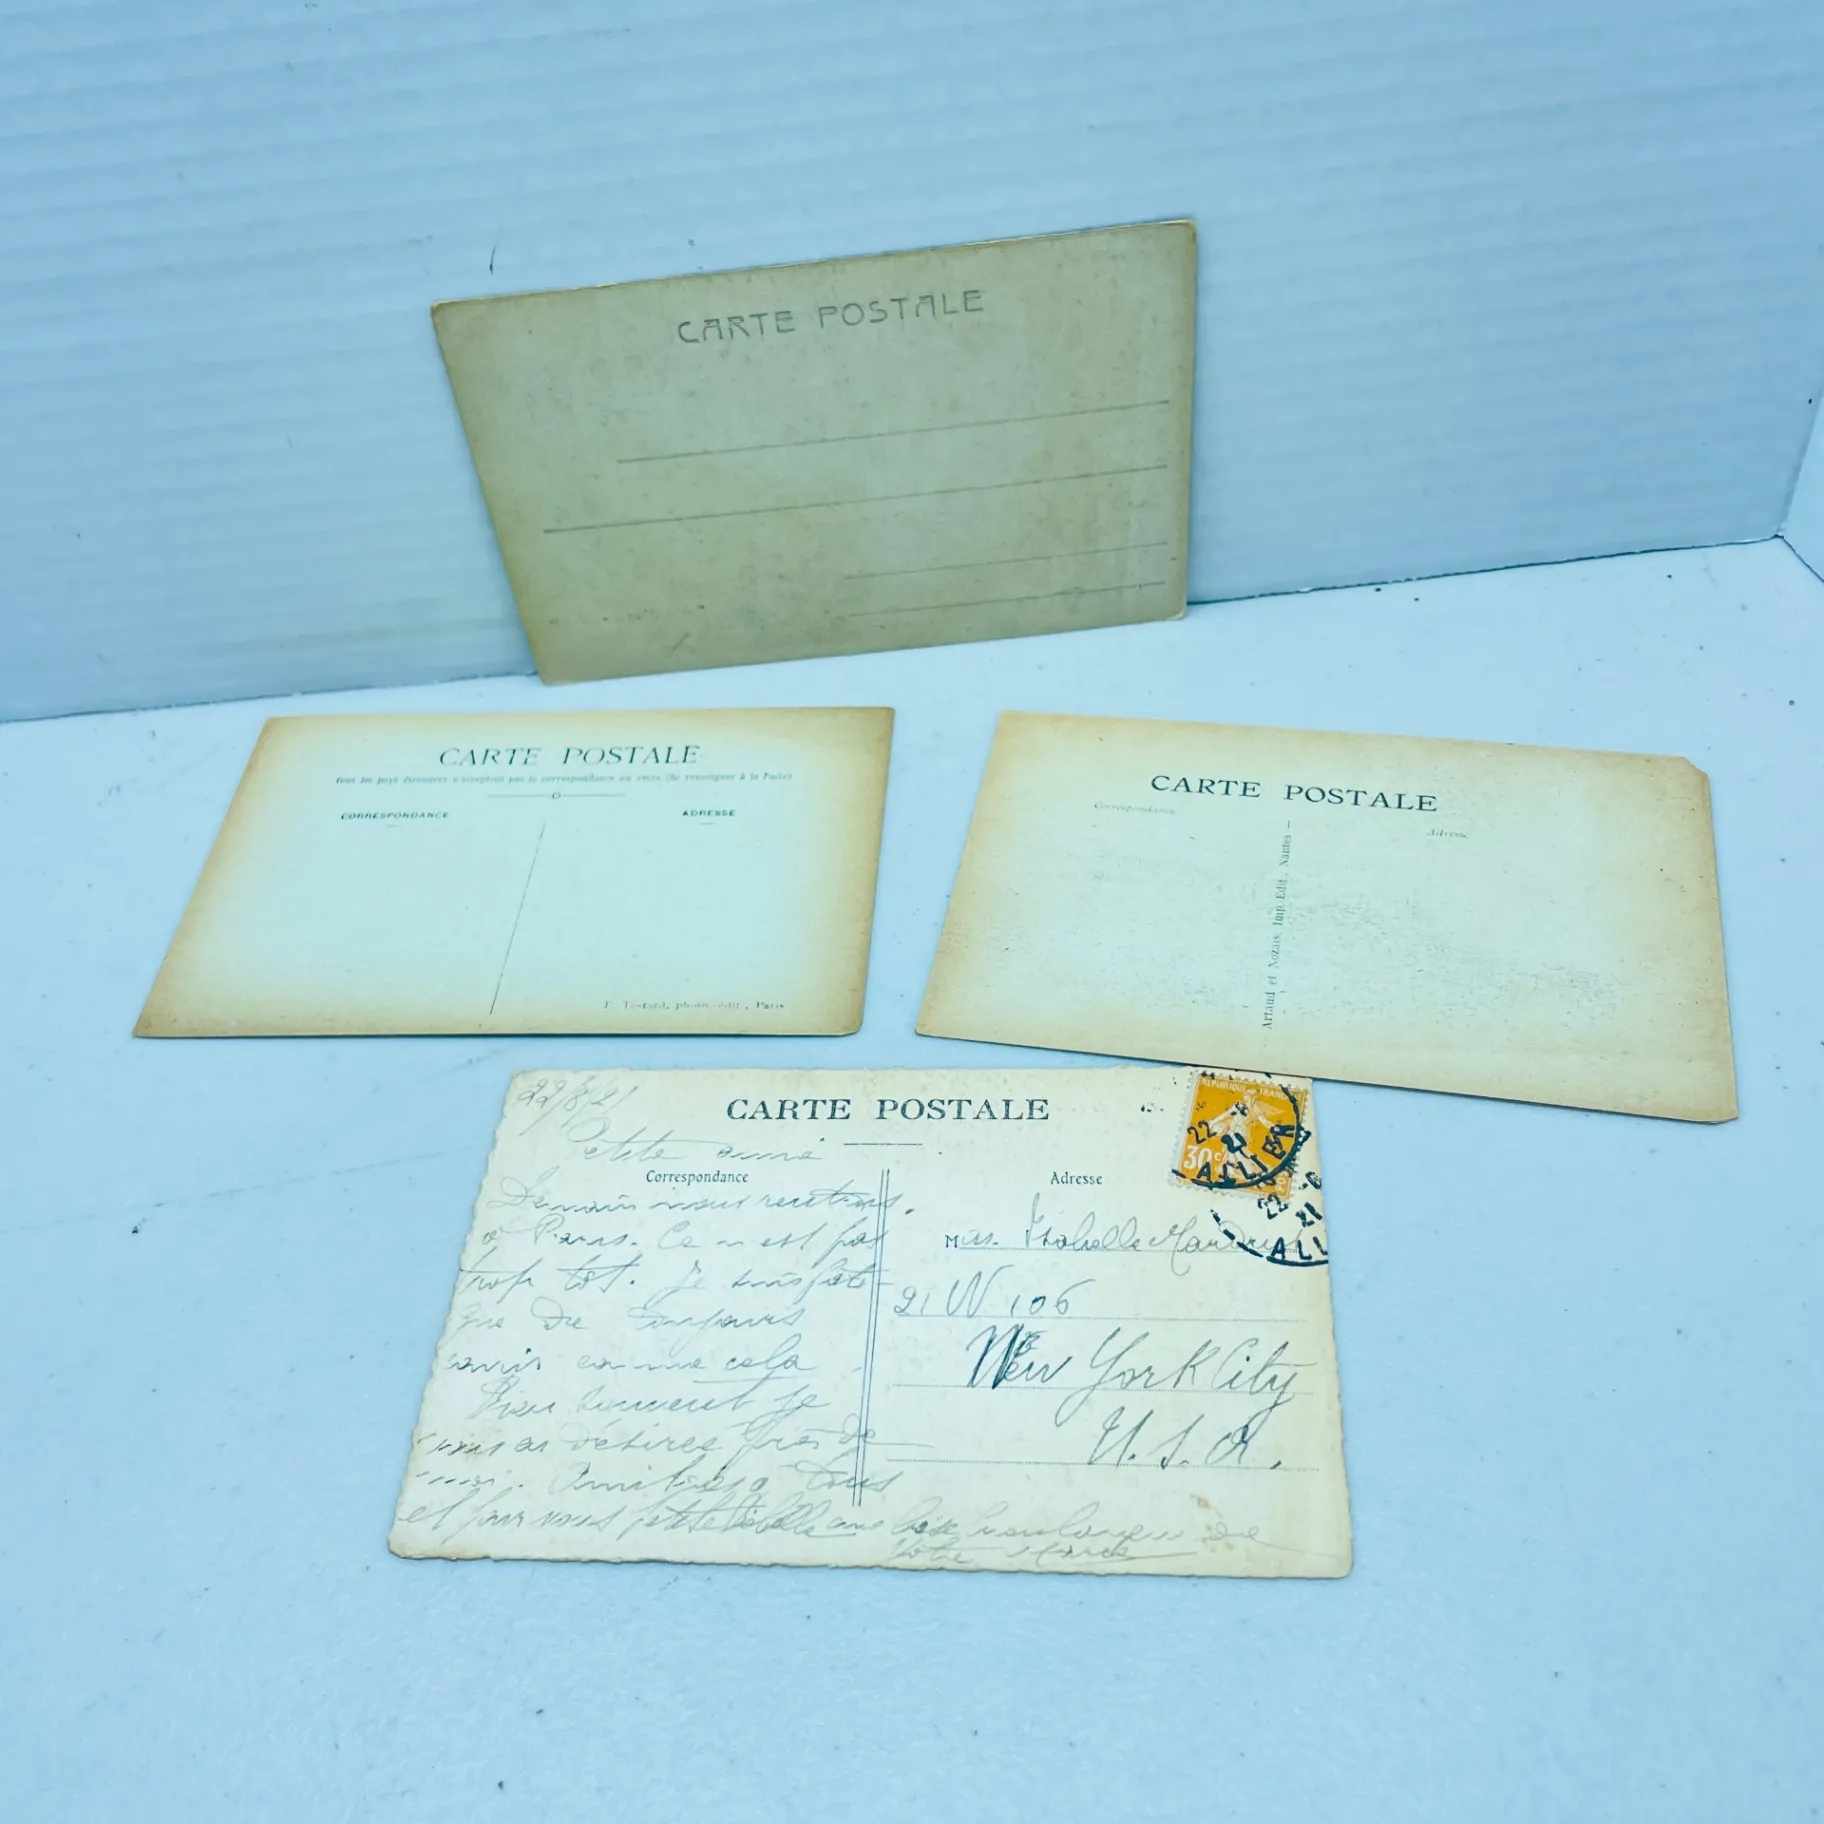 CARTE POSTALE
CARTE POSTALE
Tous les pays étrangers n'acceptent pas la correspondance au recto (Se renseigner à la Poste)
CORRESPONDANCE
ADRESSE
photo édit., Paris
CARTE POSTALE
Correspondance
Adresse
Artaud et Nozais Imp. Edit. Nantes
22/8/21
CARTE POSTALE
Petite amie
Correspondance
Demain nous rentrons
à Paris. Ce n'est pas
trop tôt. Je suis fati-
gué de toujours
comme cela
Bien souvent je
vous ai désirée près de
moi. Amitiés à tous
et pour vous petite
de
Votre
RÉPUBLIQUE FRANC
30c
22 -8
21
ALLIER
22 -8
21
ALL
Adresse
Miss.
21 W 106
New York City
U.S.A.